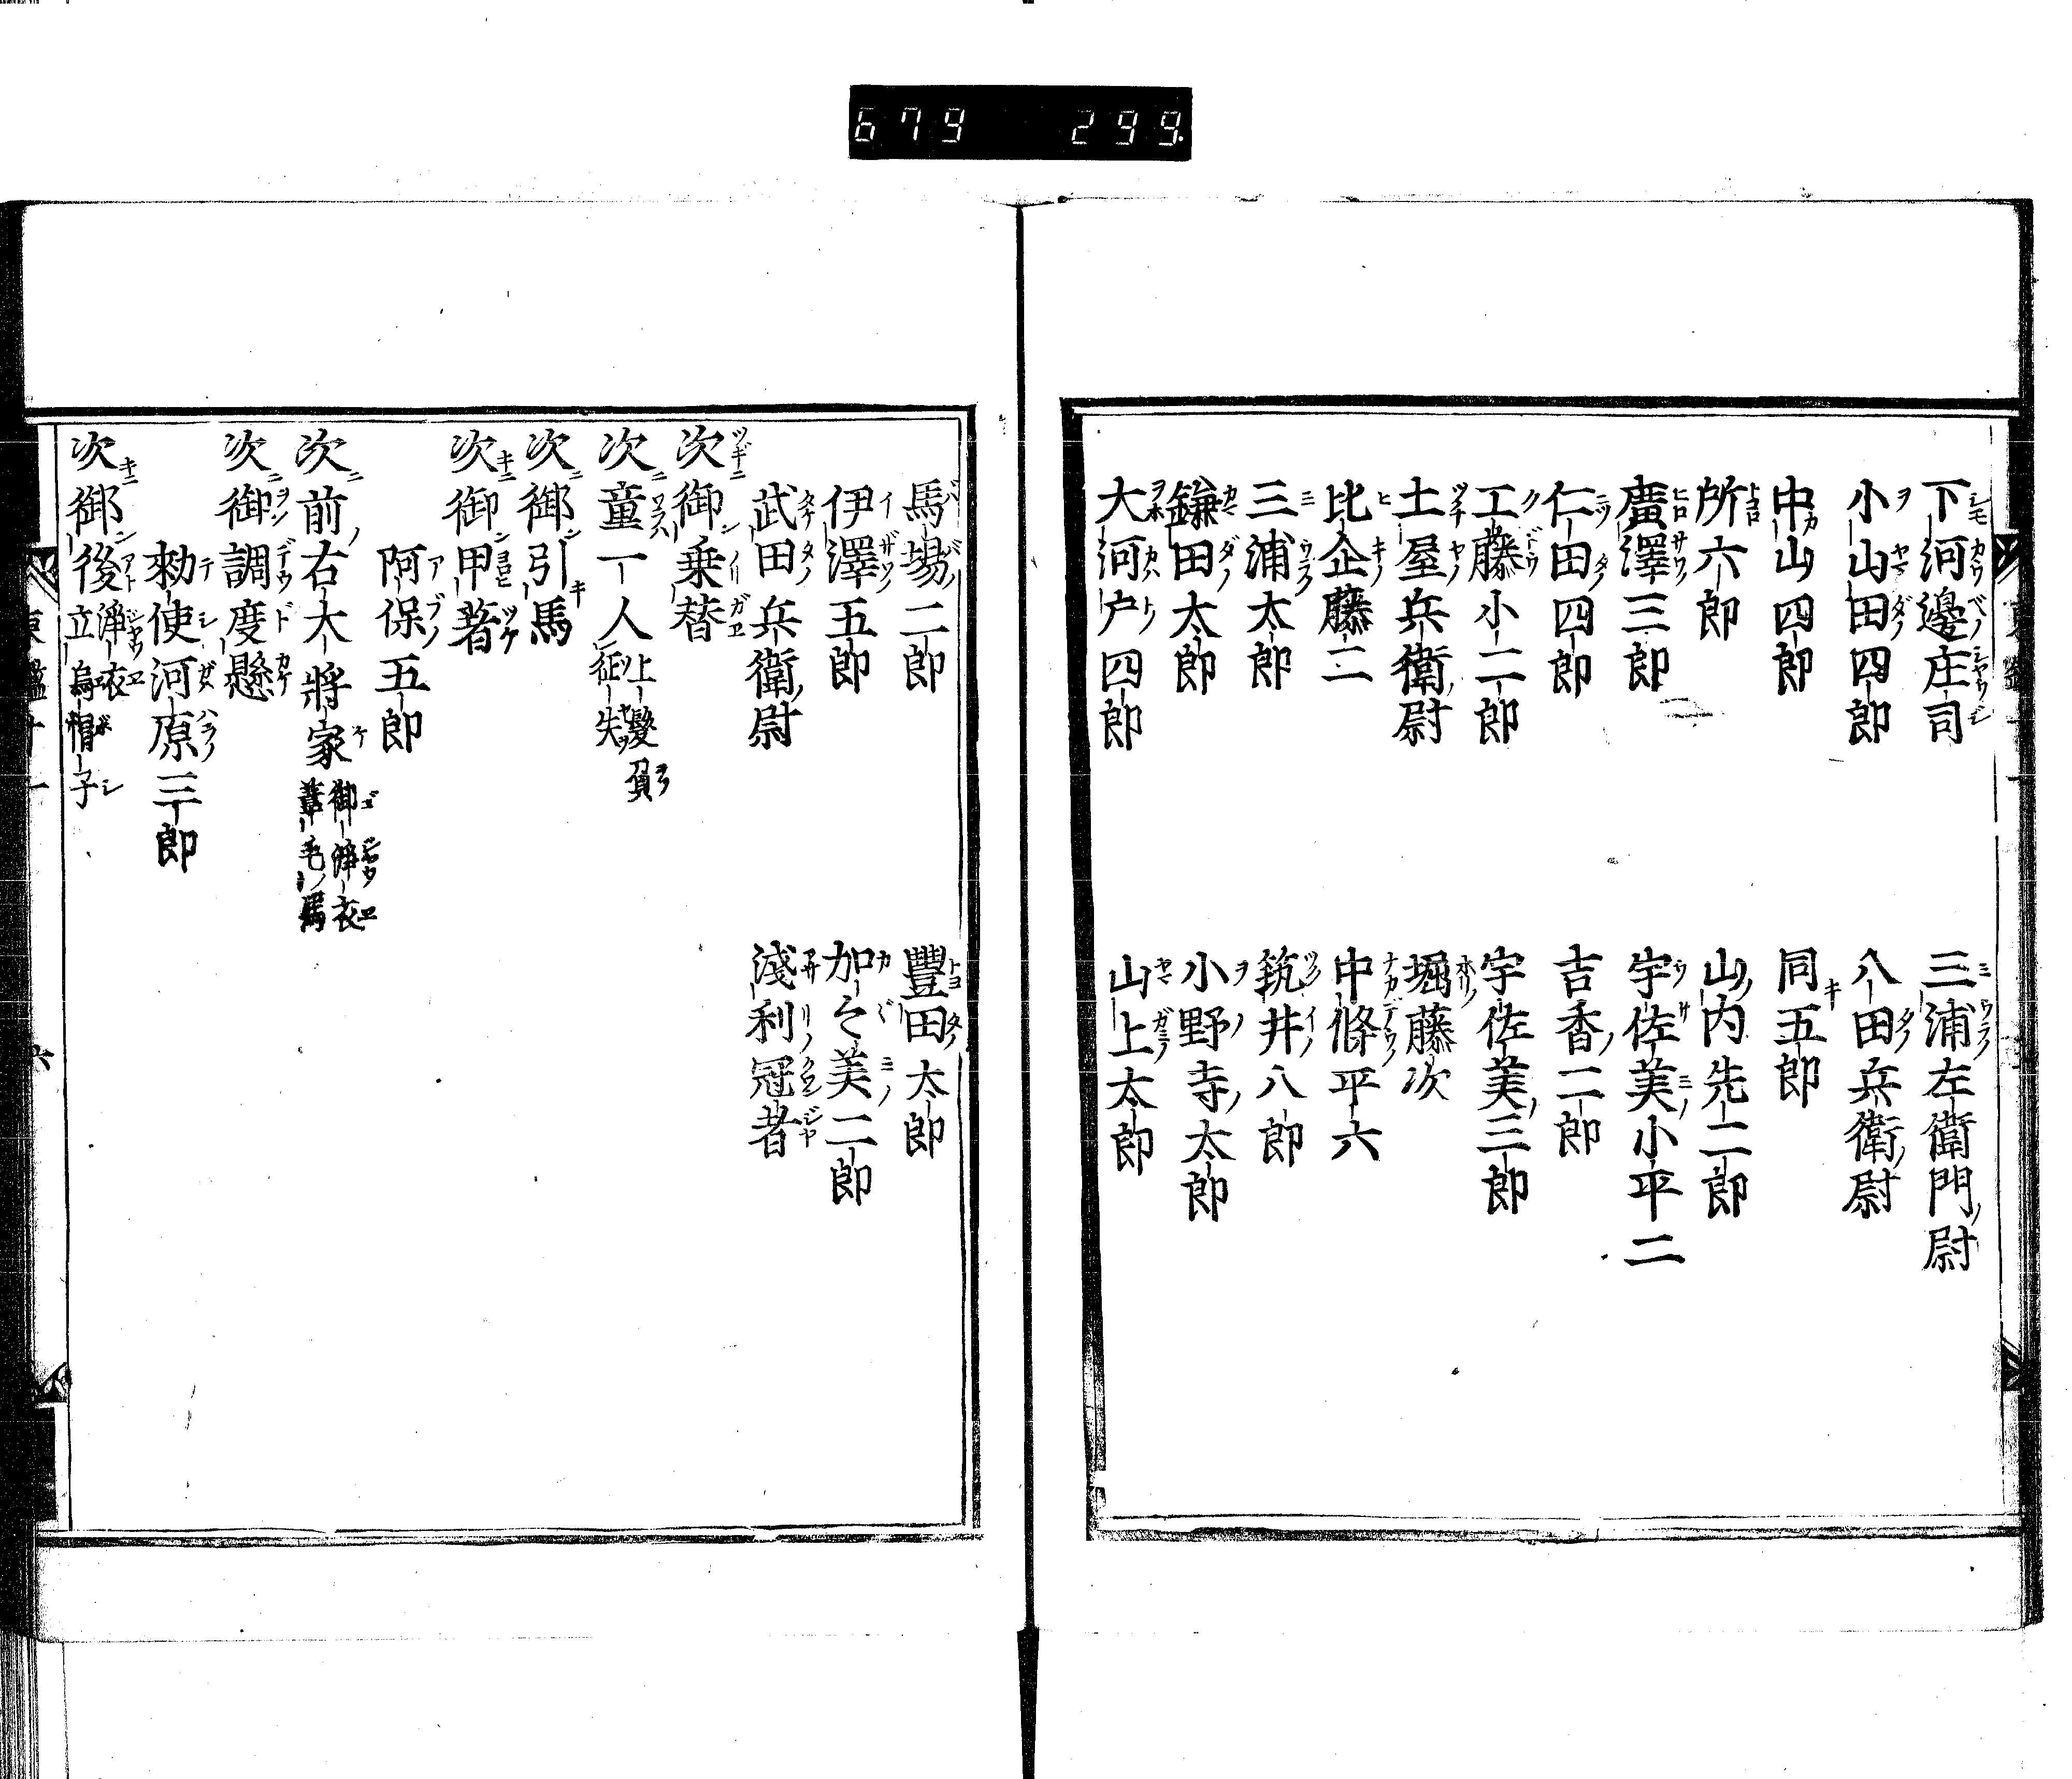 679 299
下河邊庄司 三浦左衛門尉
小山田四郎 八田兵衛尉
中山四郎 同五郎
所六郎 山内先二郎
廣澤三郎 宇佐美小平二
仁田四郎 吉香二郎
工藤小二郎 宇佐美三郎
土屋兵衛尉 堀藤次
比企藤二 中條平六
三浦太郎 筑井八郎
鎌田太郎 小野寺太郎
大河戸四郎 山上太郎
馬場二郎 豐田太郎
伊澤五郎 加々美二郎
武田兵衛尉 淺利冠者
次御乗替
次童一人 上髮負
征矢
次御引馬
次御甲著
阿保五郎
次前右大將家 御淨衣
葦毛馬
次御調度懸
勅使河原三郎
次御後 淨衣
立烏帽子
六